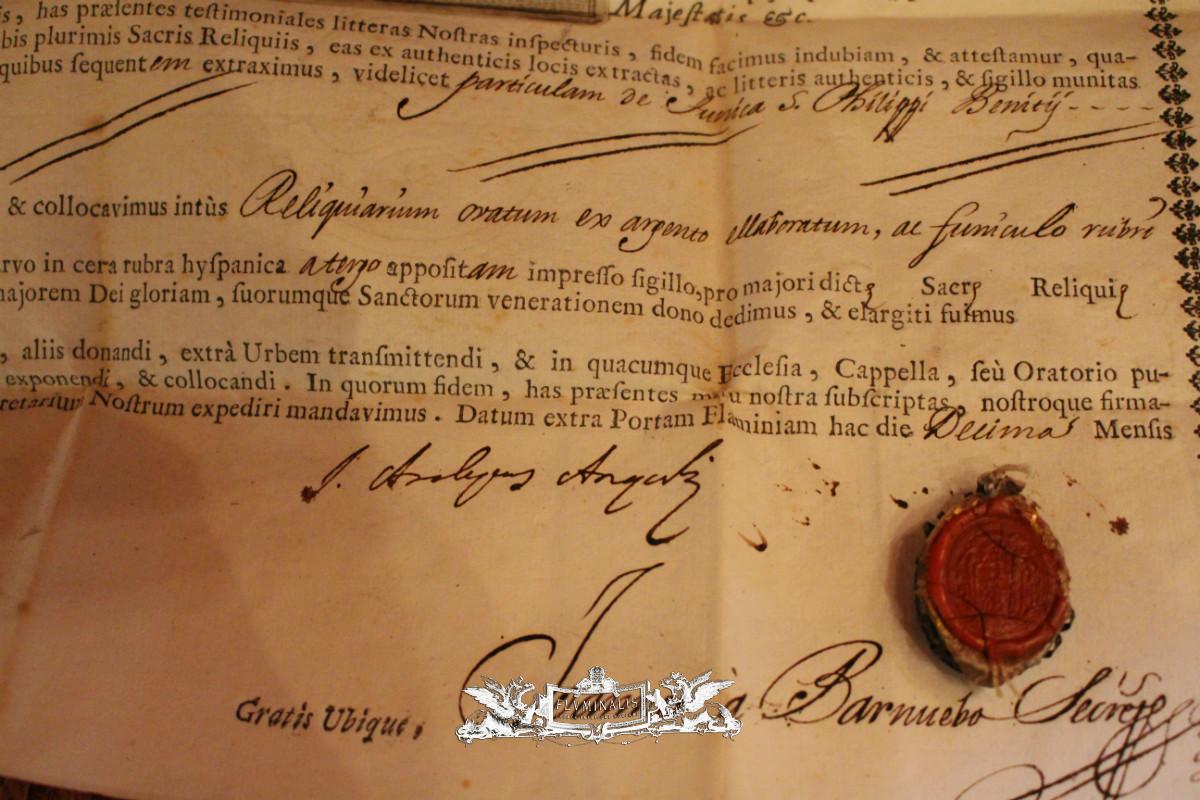 Majestatis &c.
is, has præsentes testimoniales litteras Nostras inspecturis, fidem facimus indubiam, & attestamur, qua-
bis plurimis Sacris Reliquiis, eas ex authenticis locis extractas, ac litteris authenticis, & sigillo munitas
quibus sequentem extraximus, videlicet particulam de Tunica S. Philippi Benitij - - - -
& collocavimus intùs Reliquiarium oratum ex argento ellaboratum, ac funiculo rubri
arvo in cera rubra hyspanica a tergo appositam impresso sigillo, pro majori dictę Sacrę Reliquię
najorem Dei gloriam, suorumque Sanctorum venerationem dono dedimus, & elargiti fuimus
, aliis donandi, extrà Urbem transmittendi, & in quacumque Ecclesia, Cappella, seù Oratorio pu-
exponendi, & collocandi. In quorum fidem, has præsentes manu nostra subscriptas, nostroque firma-
retarium Nostrum expediri mandavimus. Datum extra Portam Flaminiam hac die Decima Mensis
Gratis Ubique,
à Barnuebo Secret
FLUMINALIS